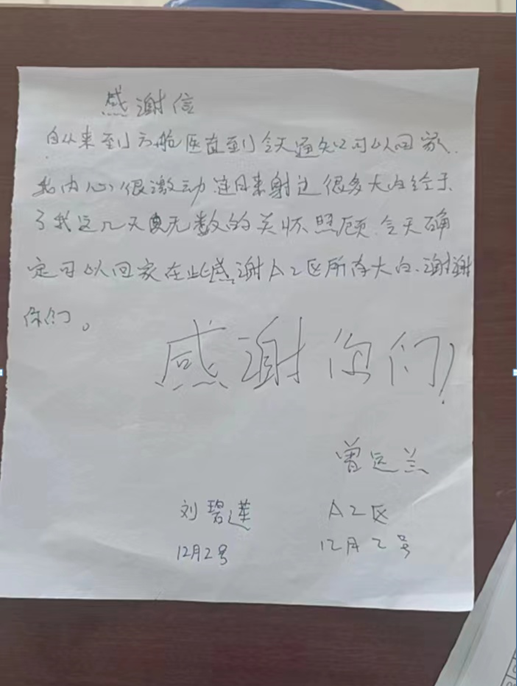 感谢信
自从来到方舱医直到今天通知可以回家.
我内心很激动 连日来射边很多大白给于
了我这几天无数的关怀照顾.今天确
定可以回家在此感谢A2区所有大白.谢谢
你们。
感谢你们!
曾运兰
刘碧莲 A2区
12月2号 12月2号